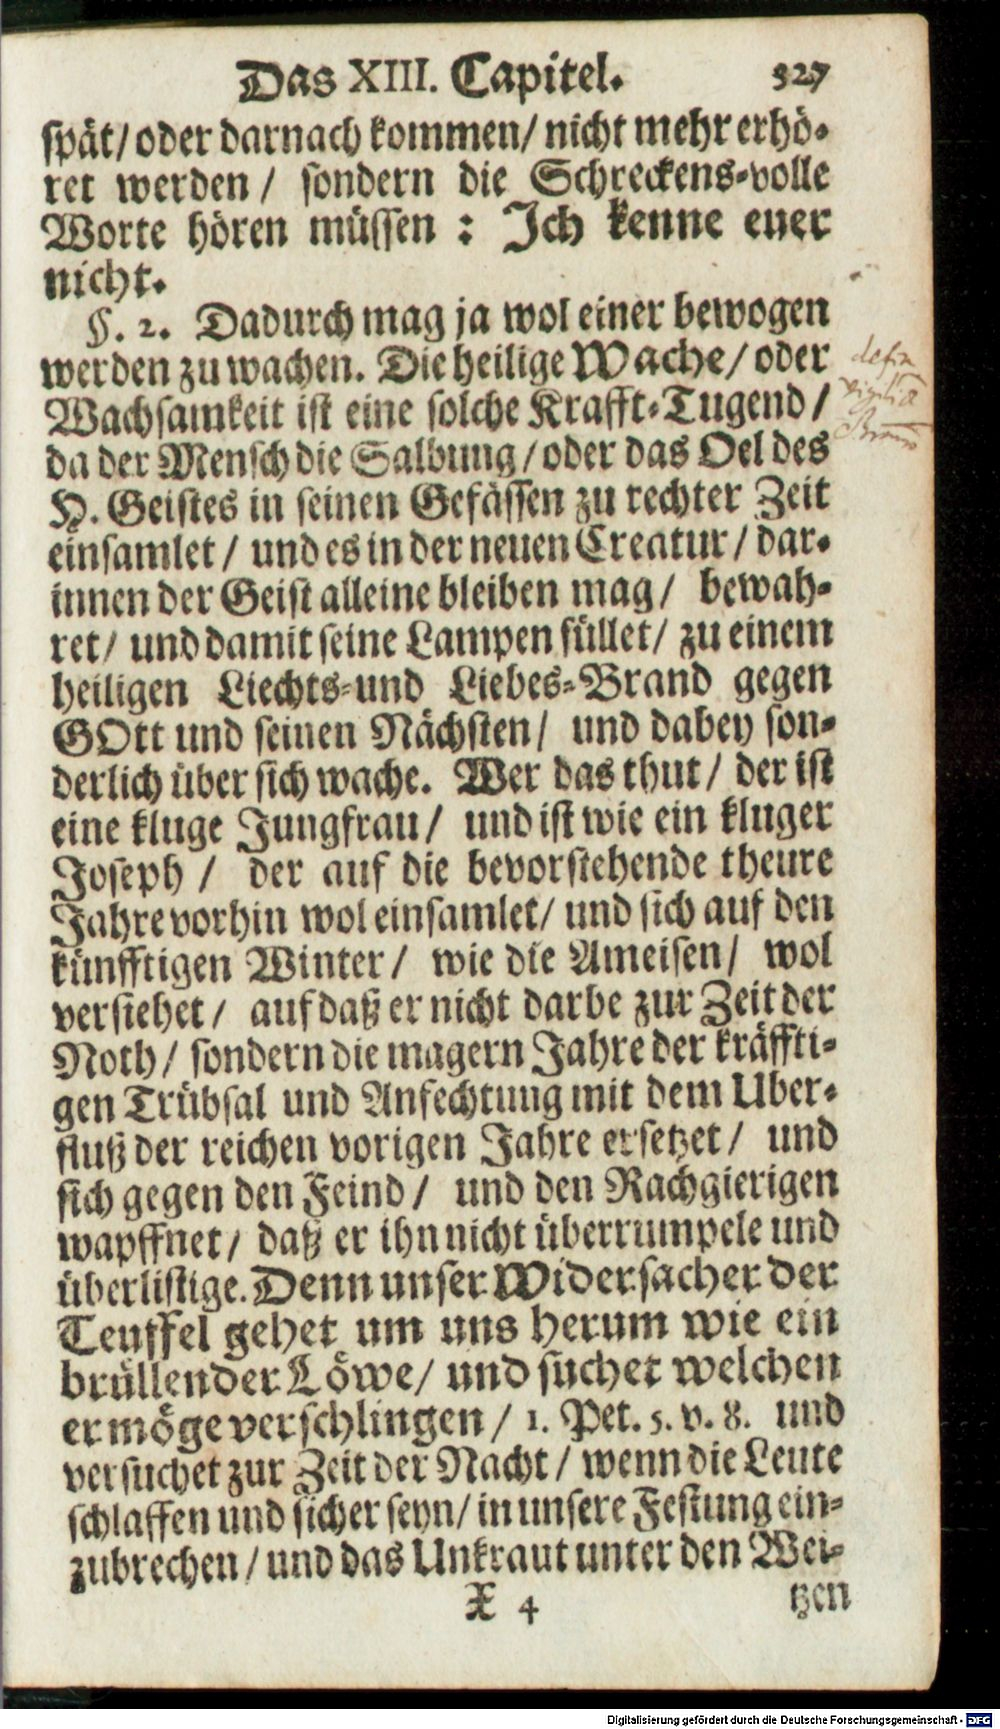 Das XIII. Capitel. 327
spät/ oder darnach kommen/ nicht mehr erhö-
ret werden / sondern die Schreckens-volle
Worte hören müssen : Ich kenne euer
nicht.
§. 2. Dadurch mag ja wol einer bewogen
werden zu wachen. Die heilige Wache/ oder
Wachsamkeit ist eine solche Krafft-Tugend /
da der Mensch die Salbung / oder das Oel des
H. Geistes in seinen Gefässen zu rechter Zeit
einsamlet / und es in der neuen Creatur / dar-
innen der Geist alleine bleiben mag / bewah-
ret / und damit seine Lampen füllet/ zu einem
heiligen Liechts-und Liebes-Brand gegen
GOtt und seinen Nächsten / und dabey son-
derlich über sich wache. Wer das thut / der ist
eine kluge Jungfrau / und ist wie ein kluger
Joseph / der auf die bevorstehende theure
Jahre vorhin wol einsamlet/ und sich auf den
künfftigen Winter / wie die Ameisen / wol
versiehet / auf daß er nicht darbe zur Zeit der
Noth / sondern die magern Jahre der kräffti-
gen Trübsal und Anfechtung mit dem Uber-
fluß der reichen vorigen Jahre ersetzet / und
sich gegen den Feind / und den Rachgierigen
wapffnet / daß er ihn nicht überrumpele und
überlistige. Denn unser Widersacher der
Teuffel gehet um uns herum wie ein
brüllender Löwe/ und suchet welchen
er möge verschlingen / 1. Pet. 5. v. 8. und
versuchet zur Zeit der Nacht / wenn die Leute
schlaffen und sicher seyn/ in unsere Festung ein-
zubrechen / und das Unkraut unter den Wei-
X 4 tzen
defin
vigiliā
Digitalisierung gefördert durch die Deutsche Forschungsgemeinschaft - DFG